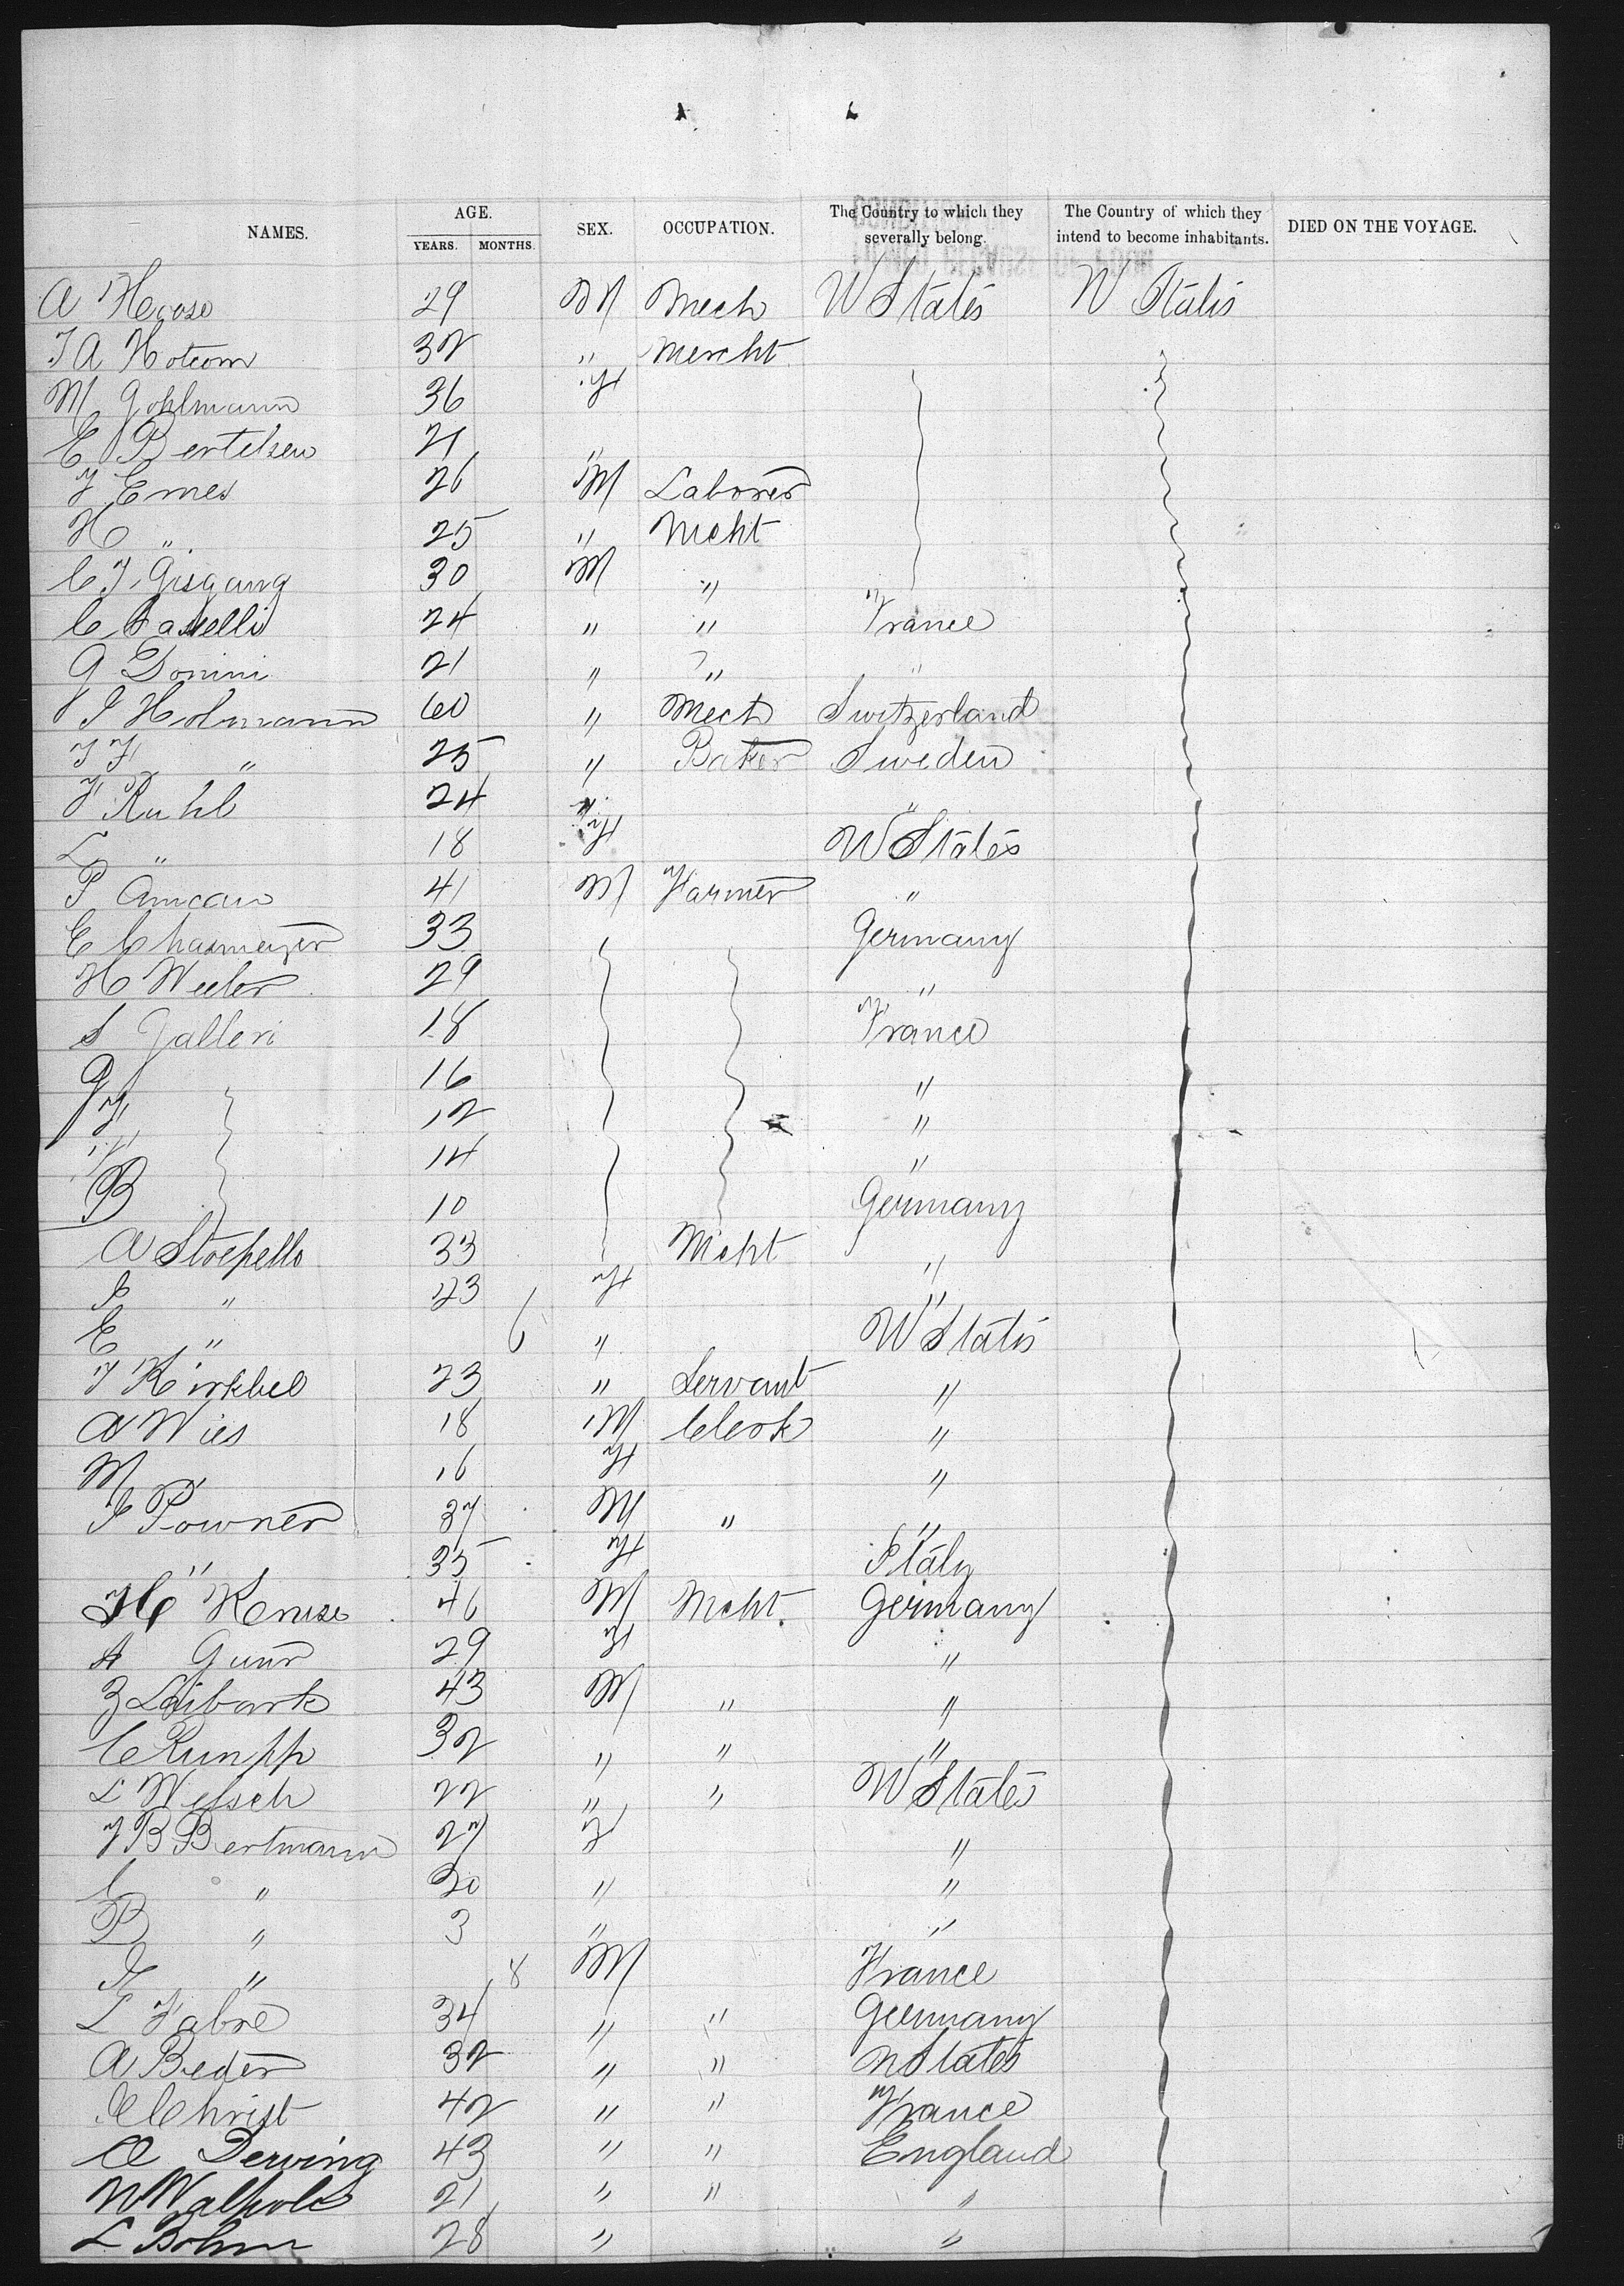 NAMES. AGE. YEARS. MONTHS. SEX. OCCUPATION. The Country to which they severally belong. The Country of which they intend to become inhabitants. DIED ON THE VOYAGE.
A 29 M Mech U States U States
J A Hotcom 32 " Mercht
M Gohlmann 36 F
E Bertelsen 21 "
J Emes 26 M Laborer
H " 25 " Mcht
C J Gisgang 30 M "
C 24 " " France
G Donini 21 " " "
J Holmann 60 " Mech Switzerland
J F " 25 " Baker Sweden
F Ruhl 24 " "
L " 18 F U States
P Amcan 41 M Farmer "
E Chasmeyer 33 Germany
H Weeler 29 "
S Galleri 18 France
G 16 "
F 12 "
14 "
B 10 Germany
A Stoepello 33 Mcht "
" 23 F "
E " 6 " U States
J Kirkbel 23 " Servant "
A Wies 18 M Clerk "
M " 16 F "
J Powner 37 M " "
" 35 F Italy
H Kruse 46 M Mcht. Germany
A Gunr 29 F "
Z Leibark 43 M " "
C Rumpp 32 " " "
L Welsch 22 " " U States
J B Bertmann 27 F "
C " 30 " "
B " 3 " "
" 8 M France
L Fabre 34 " " Germany
A Beder 32 " " U States
C Christ 42 " " France
A Derving 43 " " England
N Walpole 21 " " "
L Bohm 28 " "